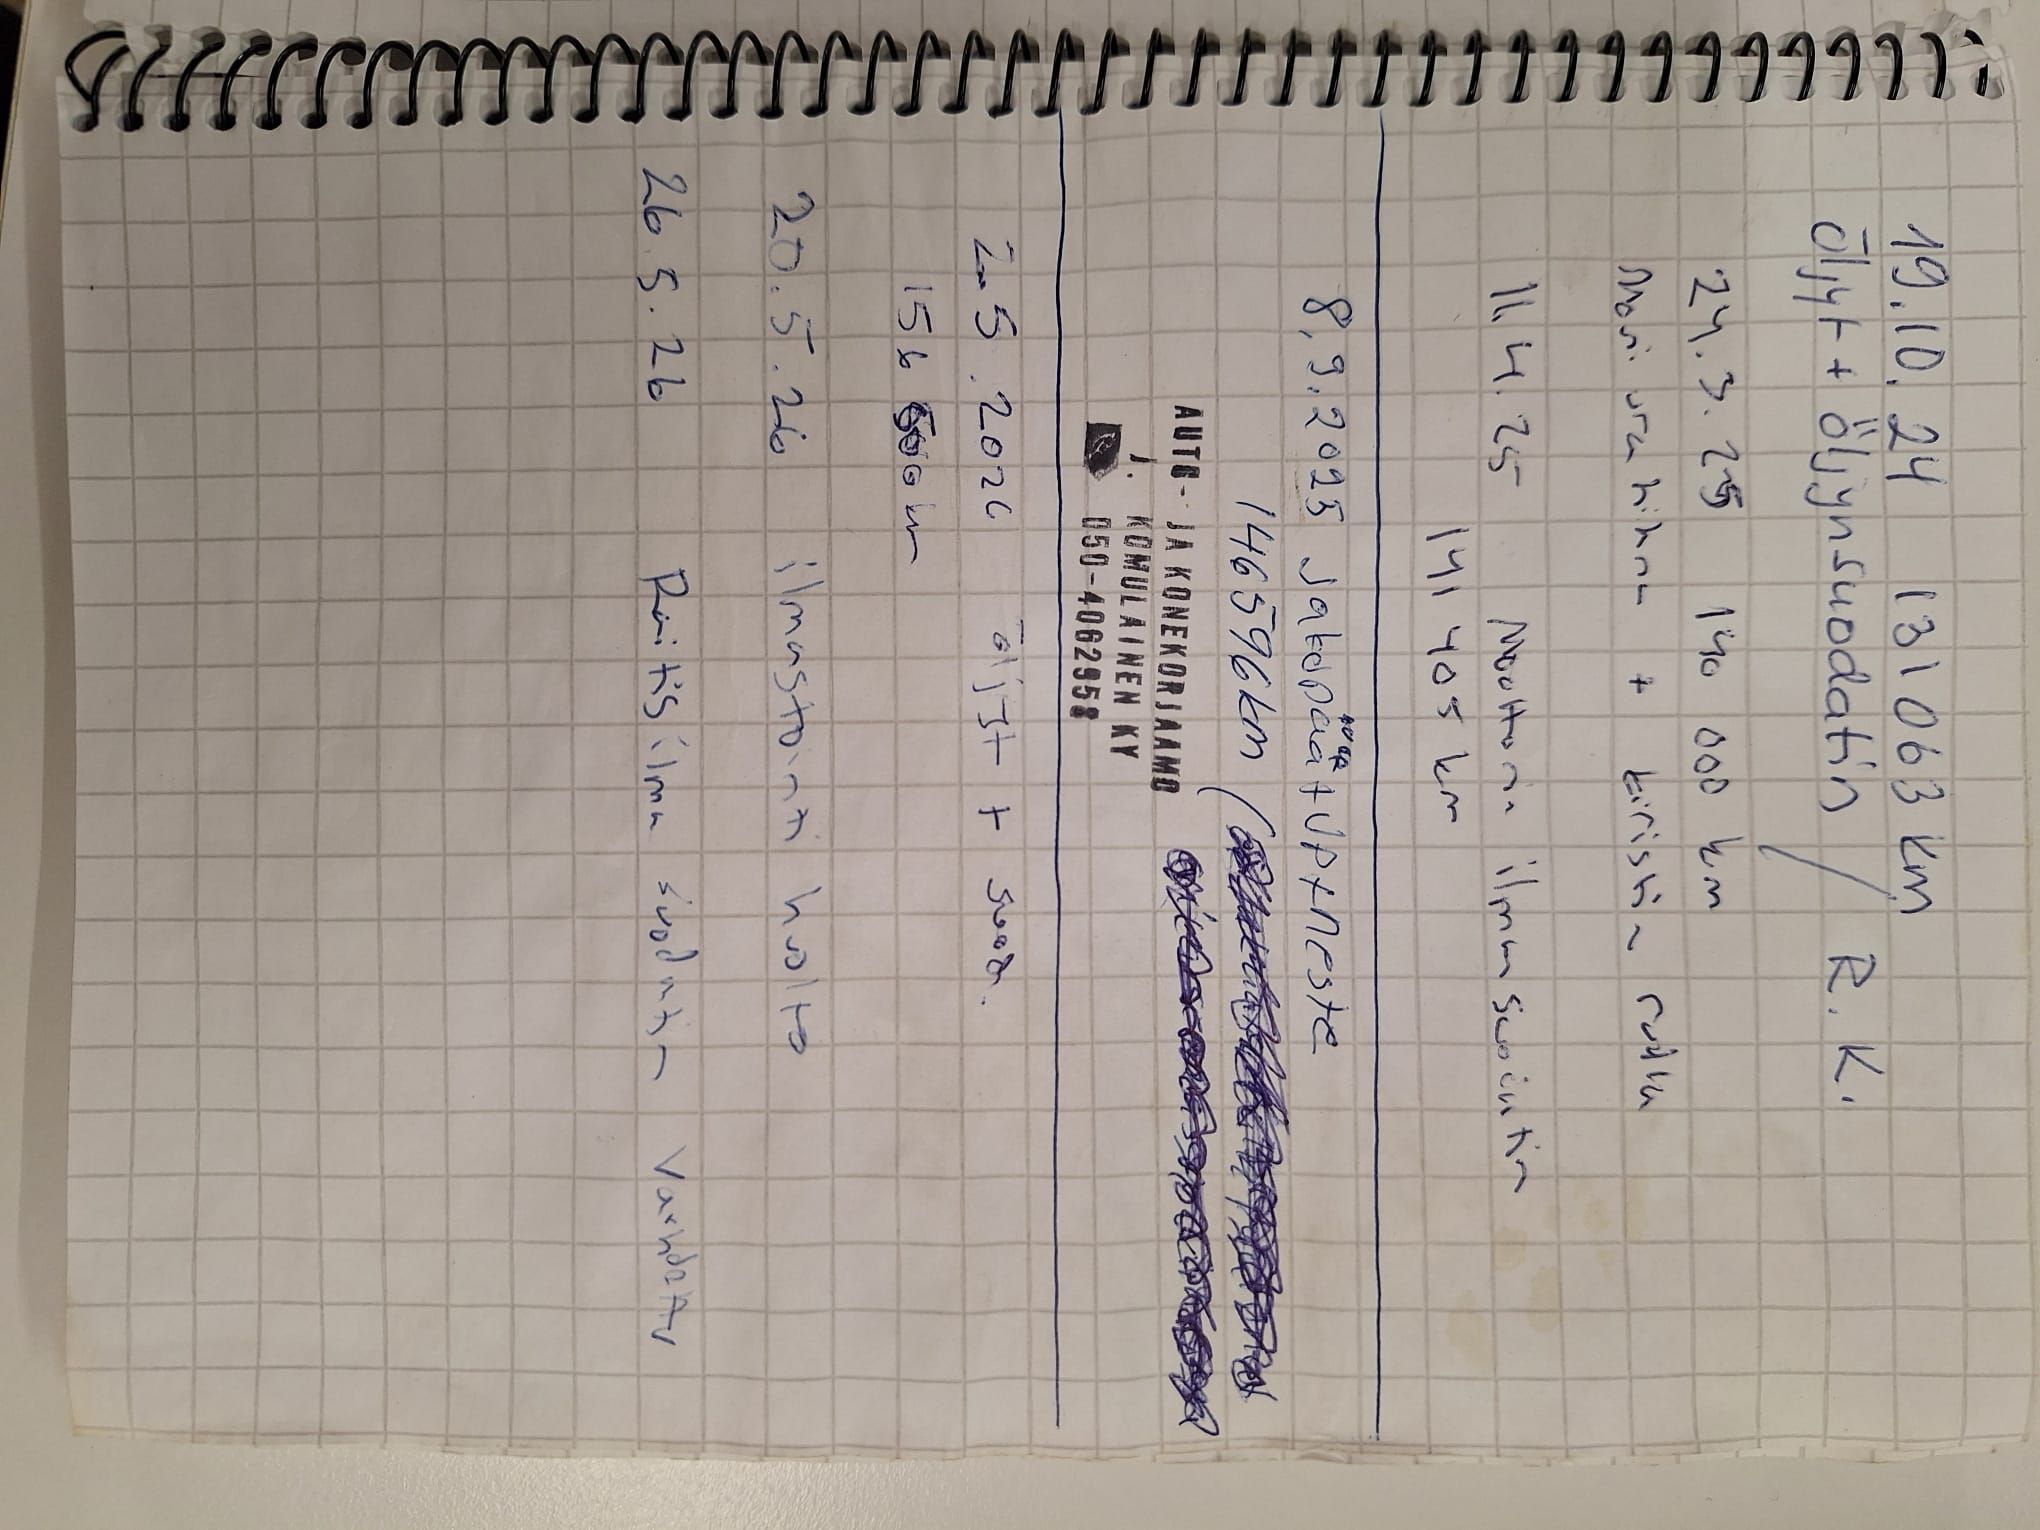 19.10.24 131 063 km
Öljyt + Öljynsuodatin / R.K.
24.3.25 140 000 km
Moni ura hihna + kiristin rulla
11.4.25 Moottorin ilmansuodatin
141 405 km
8,9.2025 Jakopää + VP + neste
146596km
AUTO- JA KONEKORJAAMO
J. KOMULAINEN KY
050-4062958
2.5.2026 öljyt + suod.
156 km
20.5.26 ilmastointi huolto
26.5.26 Raitisilma suodatin Vaihdettu